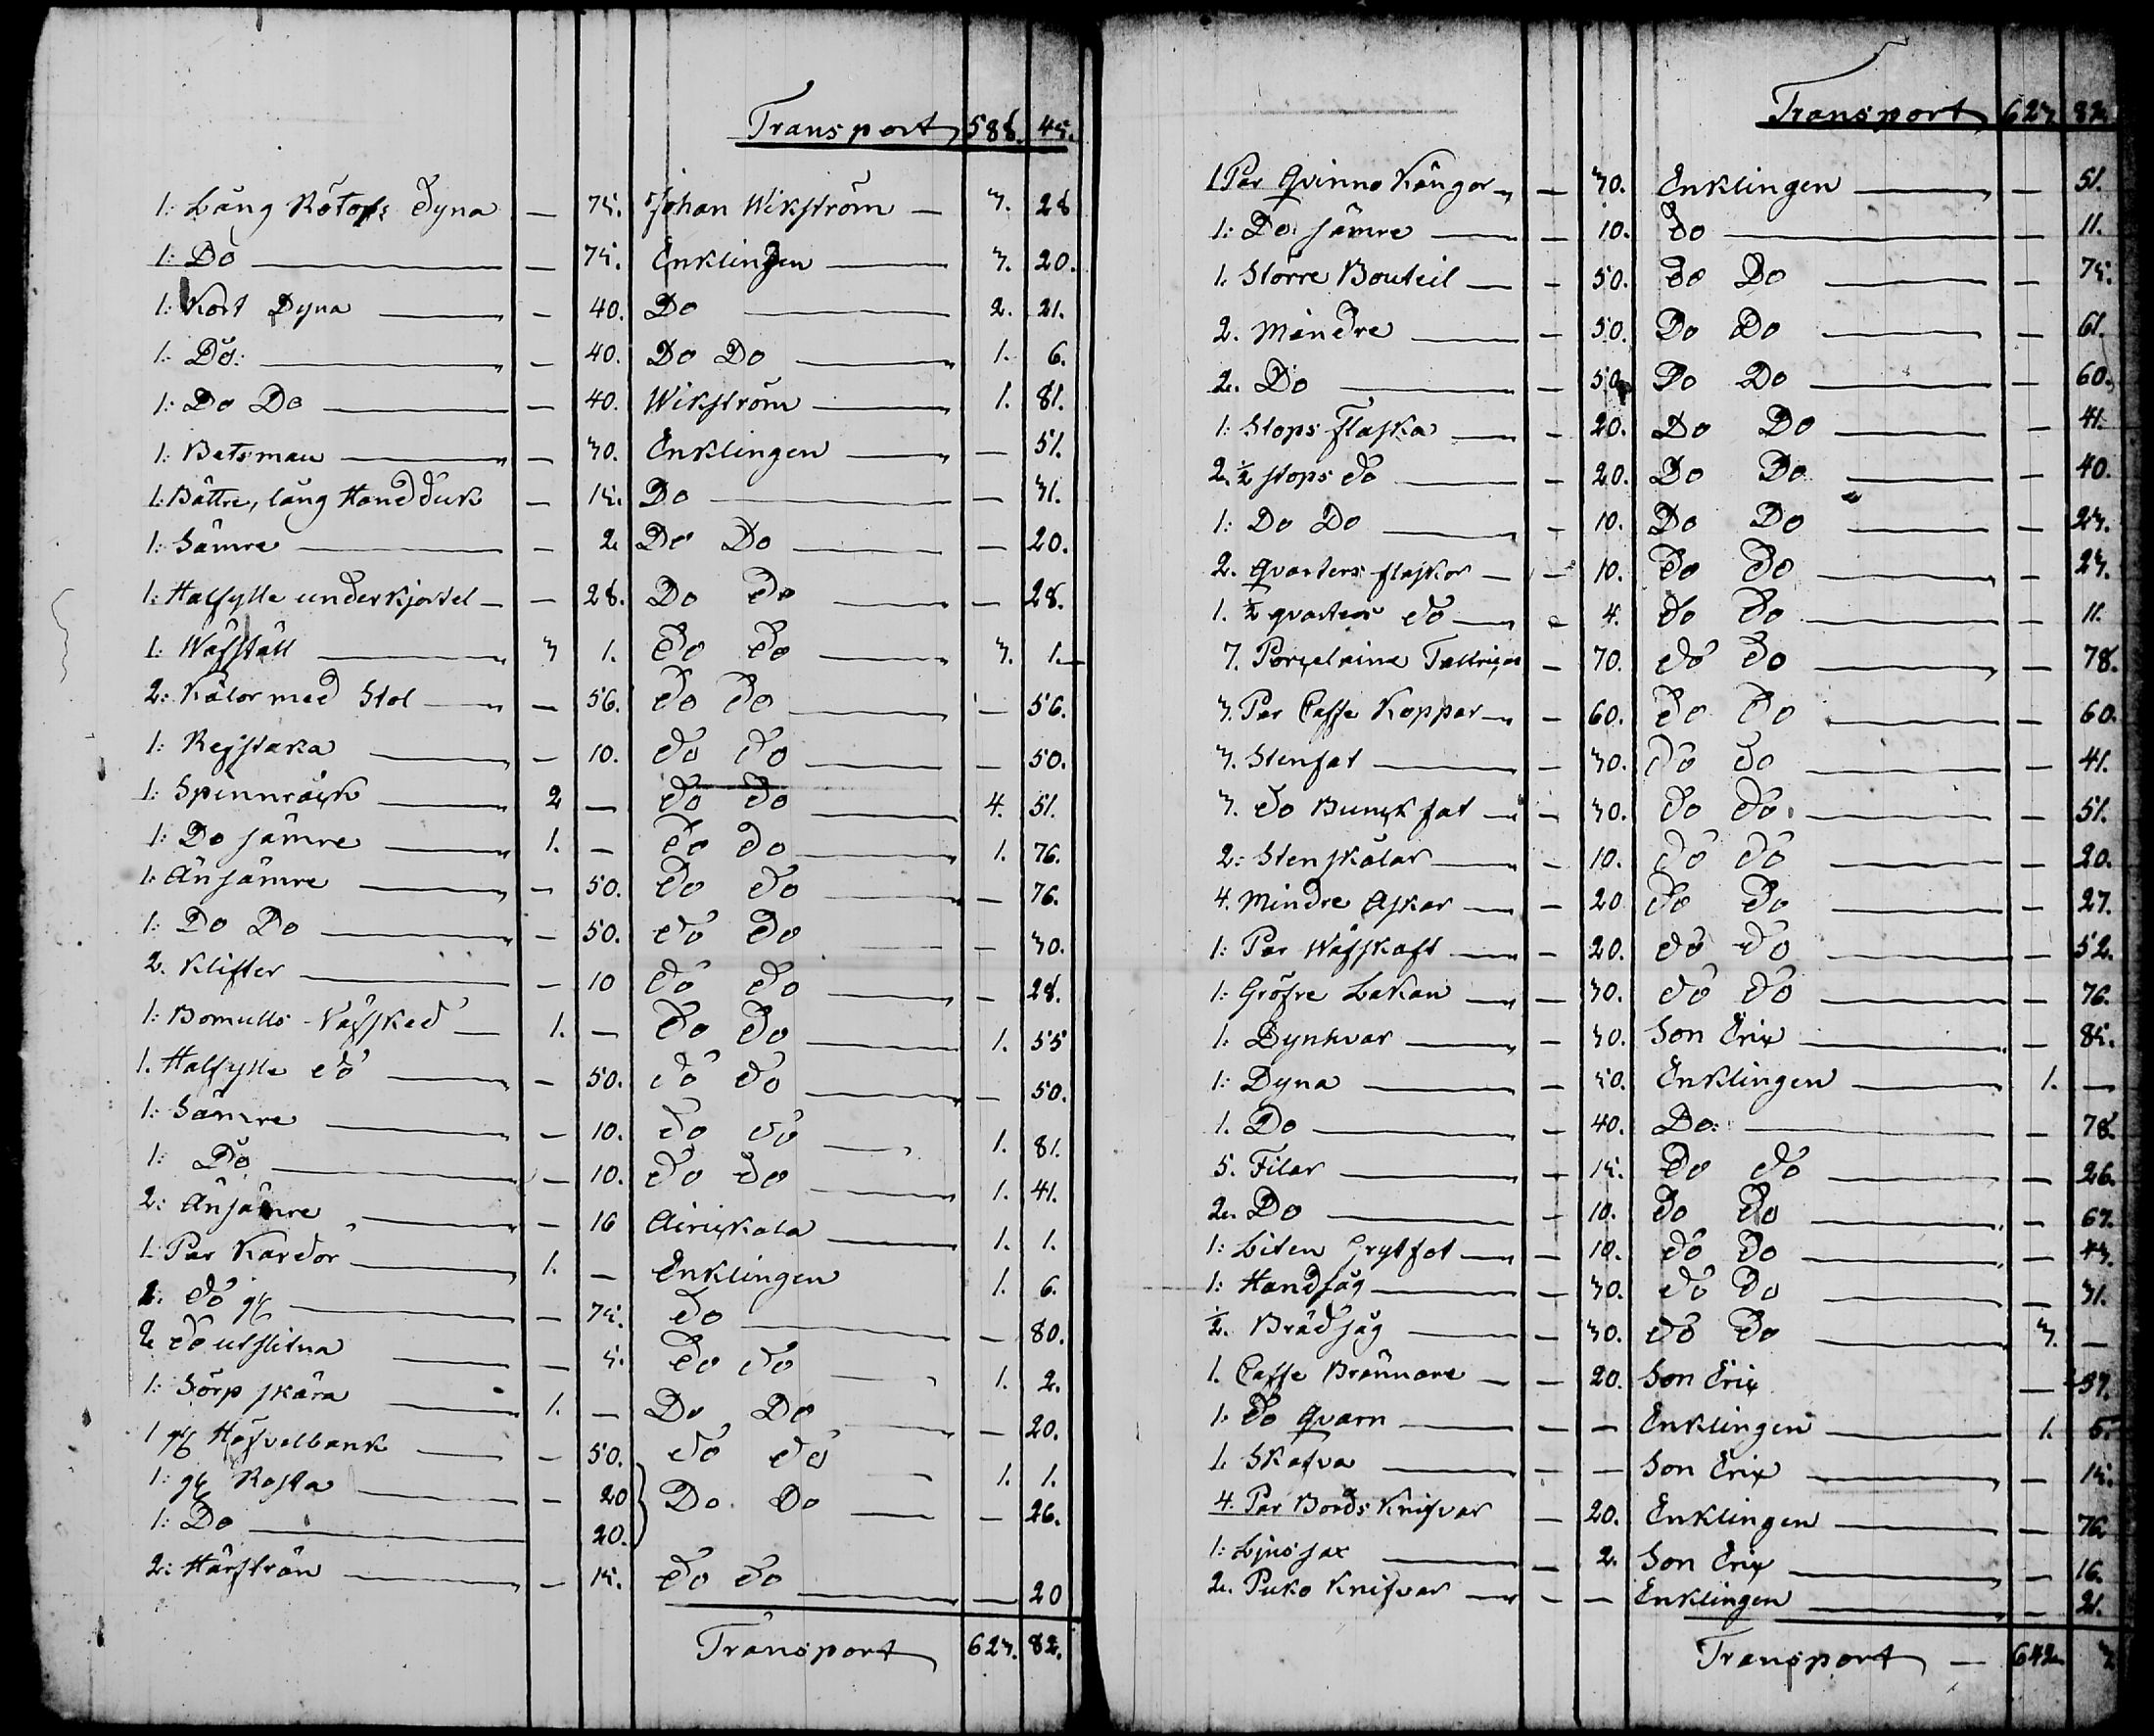 Transport 588. 45.
1: Lång Kötofs Dyna — 75. Johan Wikström — 3. 28
1: Do — 75. Enklingen — 3. 20.
1: Kort Dyna — 40. Do — 2. 21.
1: Do: — 40. Do Do — 1. 6.
1: Do Do — 40. Wikström — 1. 81.
1: Batsman — 30. Enklingen — 51.
1: Bättre, lång Handduk — 15. Do — 31.
1: Sämre — 2. Do Do — 20.
1: Halfylle underkjortel — 28. Do Do — 28.
1: Wäfställ — 3 1. Do Do — 3. 1.
2: Kålor med Stol — 56. Do Do — 56.
1: — 10. Do Do — 50.
1: Spinnråck — 2 — Do Do — 4. 51.
1: Do sämre — 1. — Do Do — 1. 76.
1: Än sämre — 50. Do Do — 76.
1: Do Do — 50. Do Do — 30.
2. Klifter — 10 Do Do — 28.
1: Bomulls Väfsked — 1. — Do Do — 1. 55
1. Halfylle do — 50. Do Do — 50.
1: Sämre — 10. Do Do — 1. 81.
1: Do — 10. Do Do — 1. 41.
2: Än sämre — 16 Airiskala — 1. 1.
1. Par Kardor — 1. — Enklingen 1. 6.
2. do gl — 75. Do — 80.
2. do utslitna — 5. Do Do — 1. 2.
1: Sörp skära — 1. — Do Do — 20.
1 gl Höfvelbänk — 50. Do Do — 1. 1.
1: gl Kosta — 20 } Do Do — 26.
1: Do — 20.
2: Hårstrån — 15. Do Do — 20
Transport 623. 82.
Transport 623 82.
1 Par Qvinno Kängor — 30. Enklingen — 51.
1: Do sämre — 10. Do — 11.
1. Större Bouteil — 50. Do Do — 75.
2. Mindre — 50. Do Do — 61.
2. Do — 50. Do Do — 60.
1: Stops flaska — 20. Do Do — 41.
2. ½ stops do — 20. Do Do — 40.
1: Do Do — 10. Do Do — 23.
2. qvarters flaskor — 10. Do Do — 23.
1. ½ qvarters do — 4. Do Do — 11.
7. Porcelaine Tallrickar — 70. Do Do — 78.
3. Par Caffe Koppar — 60. Do Do — 60.
3. Stenfat — 30. Do Do — 41.
3. do Bunckfat — 30. Do Do — 51.
2: Stenskålar — 10. Do Do — 20.
4. Mindre Askar — 20 Do Do — 27.
1: Par Wäfskaft — 20. Do Do — 52.
1: Gröfre Lakan — 30. Do Do — 76.
1: Dynhvar — 30. Son Eric — 85.
1: Dyna — 50. Enklingen — 1. —
1. Do — 40. Do: — 78.
5. Filar — 15. Do Do — 26.
2. Do — 10. Do Do — 67.
1: Liten Grytfot — 10. Do Do — 43.
1: Handsåg — 30. Do Do — 31.
½. Brädsåg — 30. Do Do — 3. —
1. Caffe Brännare — 20. Son Eric — 37.
1. Do qvarn — — Enklingen — 1. 5.
1. Skafva — — Son Eric — 15.
4. Par Bords Knifvar — 20. Enklingen — 76
1: Ljussax — 2. Son Eric — 16.
2. Puko Knifvar — — Enklingen — 21.
Transport — 642.